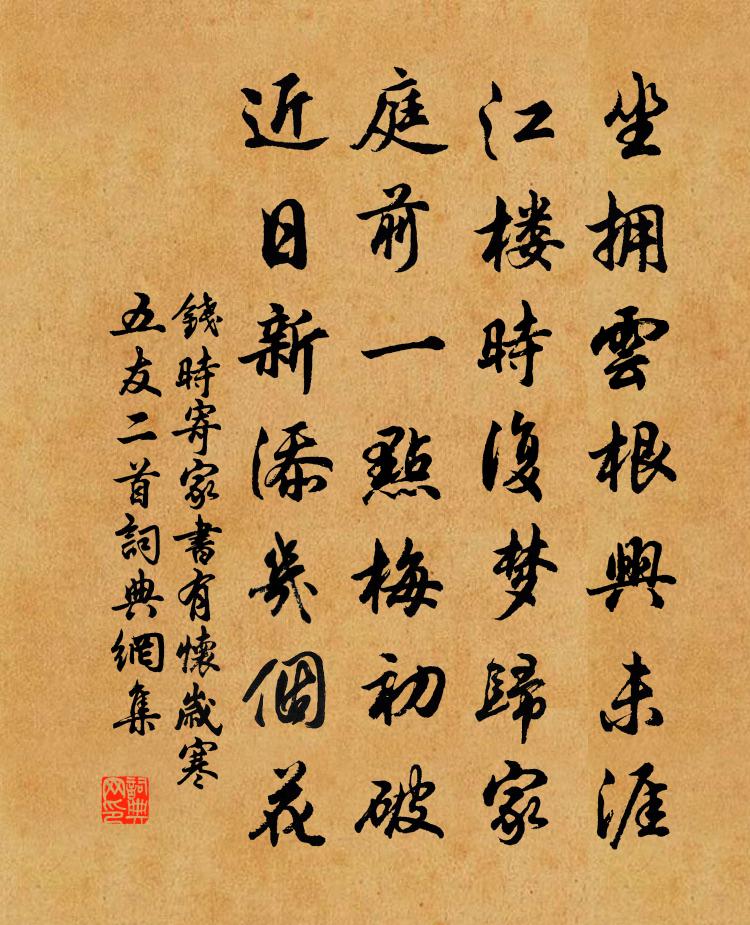 坐拥雲根興未涯
江楼時復梦歸家
庭前一點梅初破
近日新添幾個花
錢時寄家書有懷歲寒
五友二首詞典網集
詞典网印